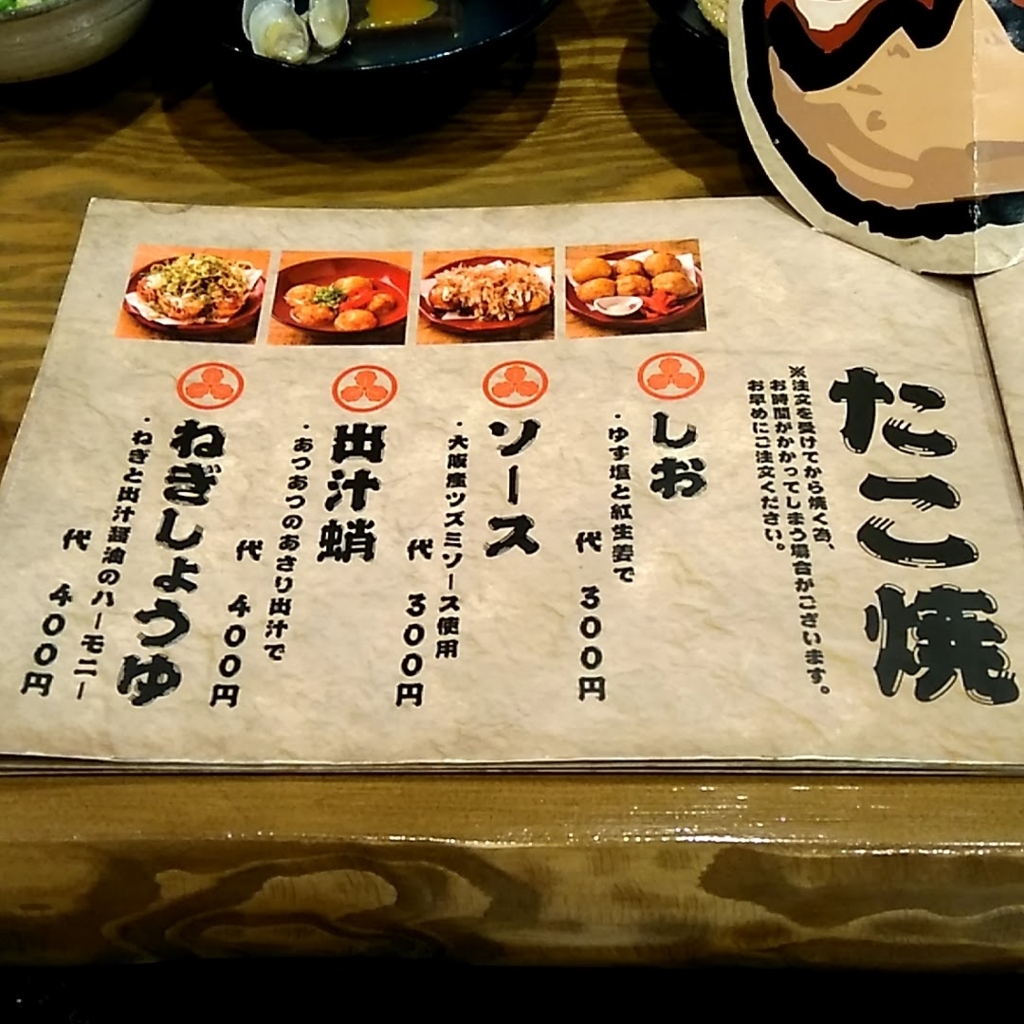 たこ焼
※注文を受けてから焼く為、
お時間がかかってしまう場合がございます。
お早めにご注文ください。
しお
・ゆず塩と紅生姜で
代 300円
ソース
・大阪産ツヅミソース使用
代 300円
出汁蛸
・あつあつのあさり出汁で
代 400円
ねぎしょうゆ
・ねぎと出汁醤油のハーモニー
代 400円